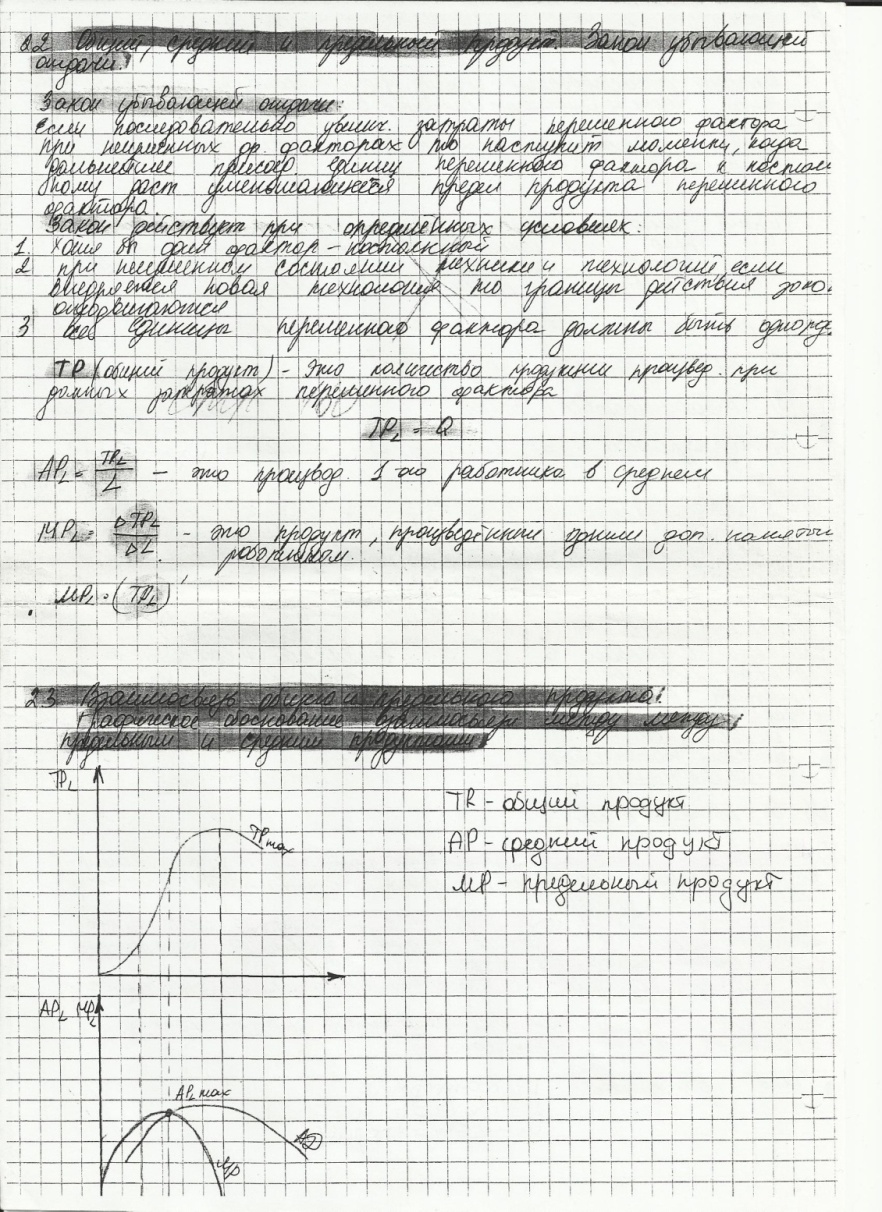 22 Общий, средний и предельный продукт. Закон убывающей
отдачи.
Закон убывающей отдачи:
Если последовательно увелич. затраты переменного фактора
при неизменных др. факторах то наступит момент, когда
дальнейшее присоед единиц переменного фактора к постоян
ному даст уменьшающийся предел продукта переменного
фактора.
Закон действует при определённых условиях:
1. Хотя бы один фактор - постоянный
2 при неизменном состоянии техники и технологий если
внедряется новая технология то границы действия зако.
отодвигаются
3 все единицы переменного фактора должны быть однород.
TP (общий продукт) - это количество продукции произвед. при
данных затратах переменного фактора
TP_L = Q
AP_L = TP_L / L - это производ. 1-го работника в среднем
MP_L = ΔTP_L / ΔL - это продукт, произведённый одним доп. нанятым
работником.
MP_L = (TP_L)'
23 Взаимосвязь общего и предельного продукта.
Графическое обоснование взаимосвязи между между
предельным и средним продуктами
TP_L
TP max
TR - общий продукт
AP - средний продукт
MP - предельный продукт
AP_L MP_L
AP_L max
AP
MP